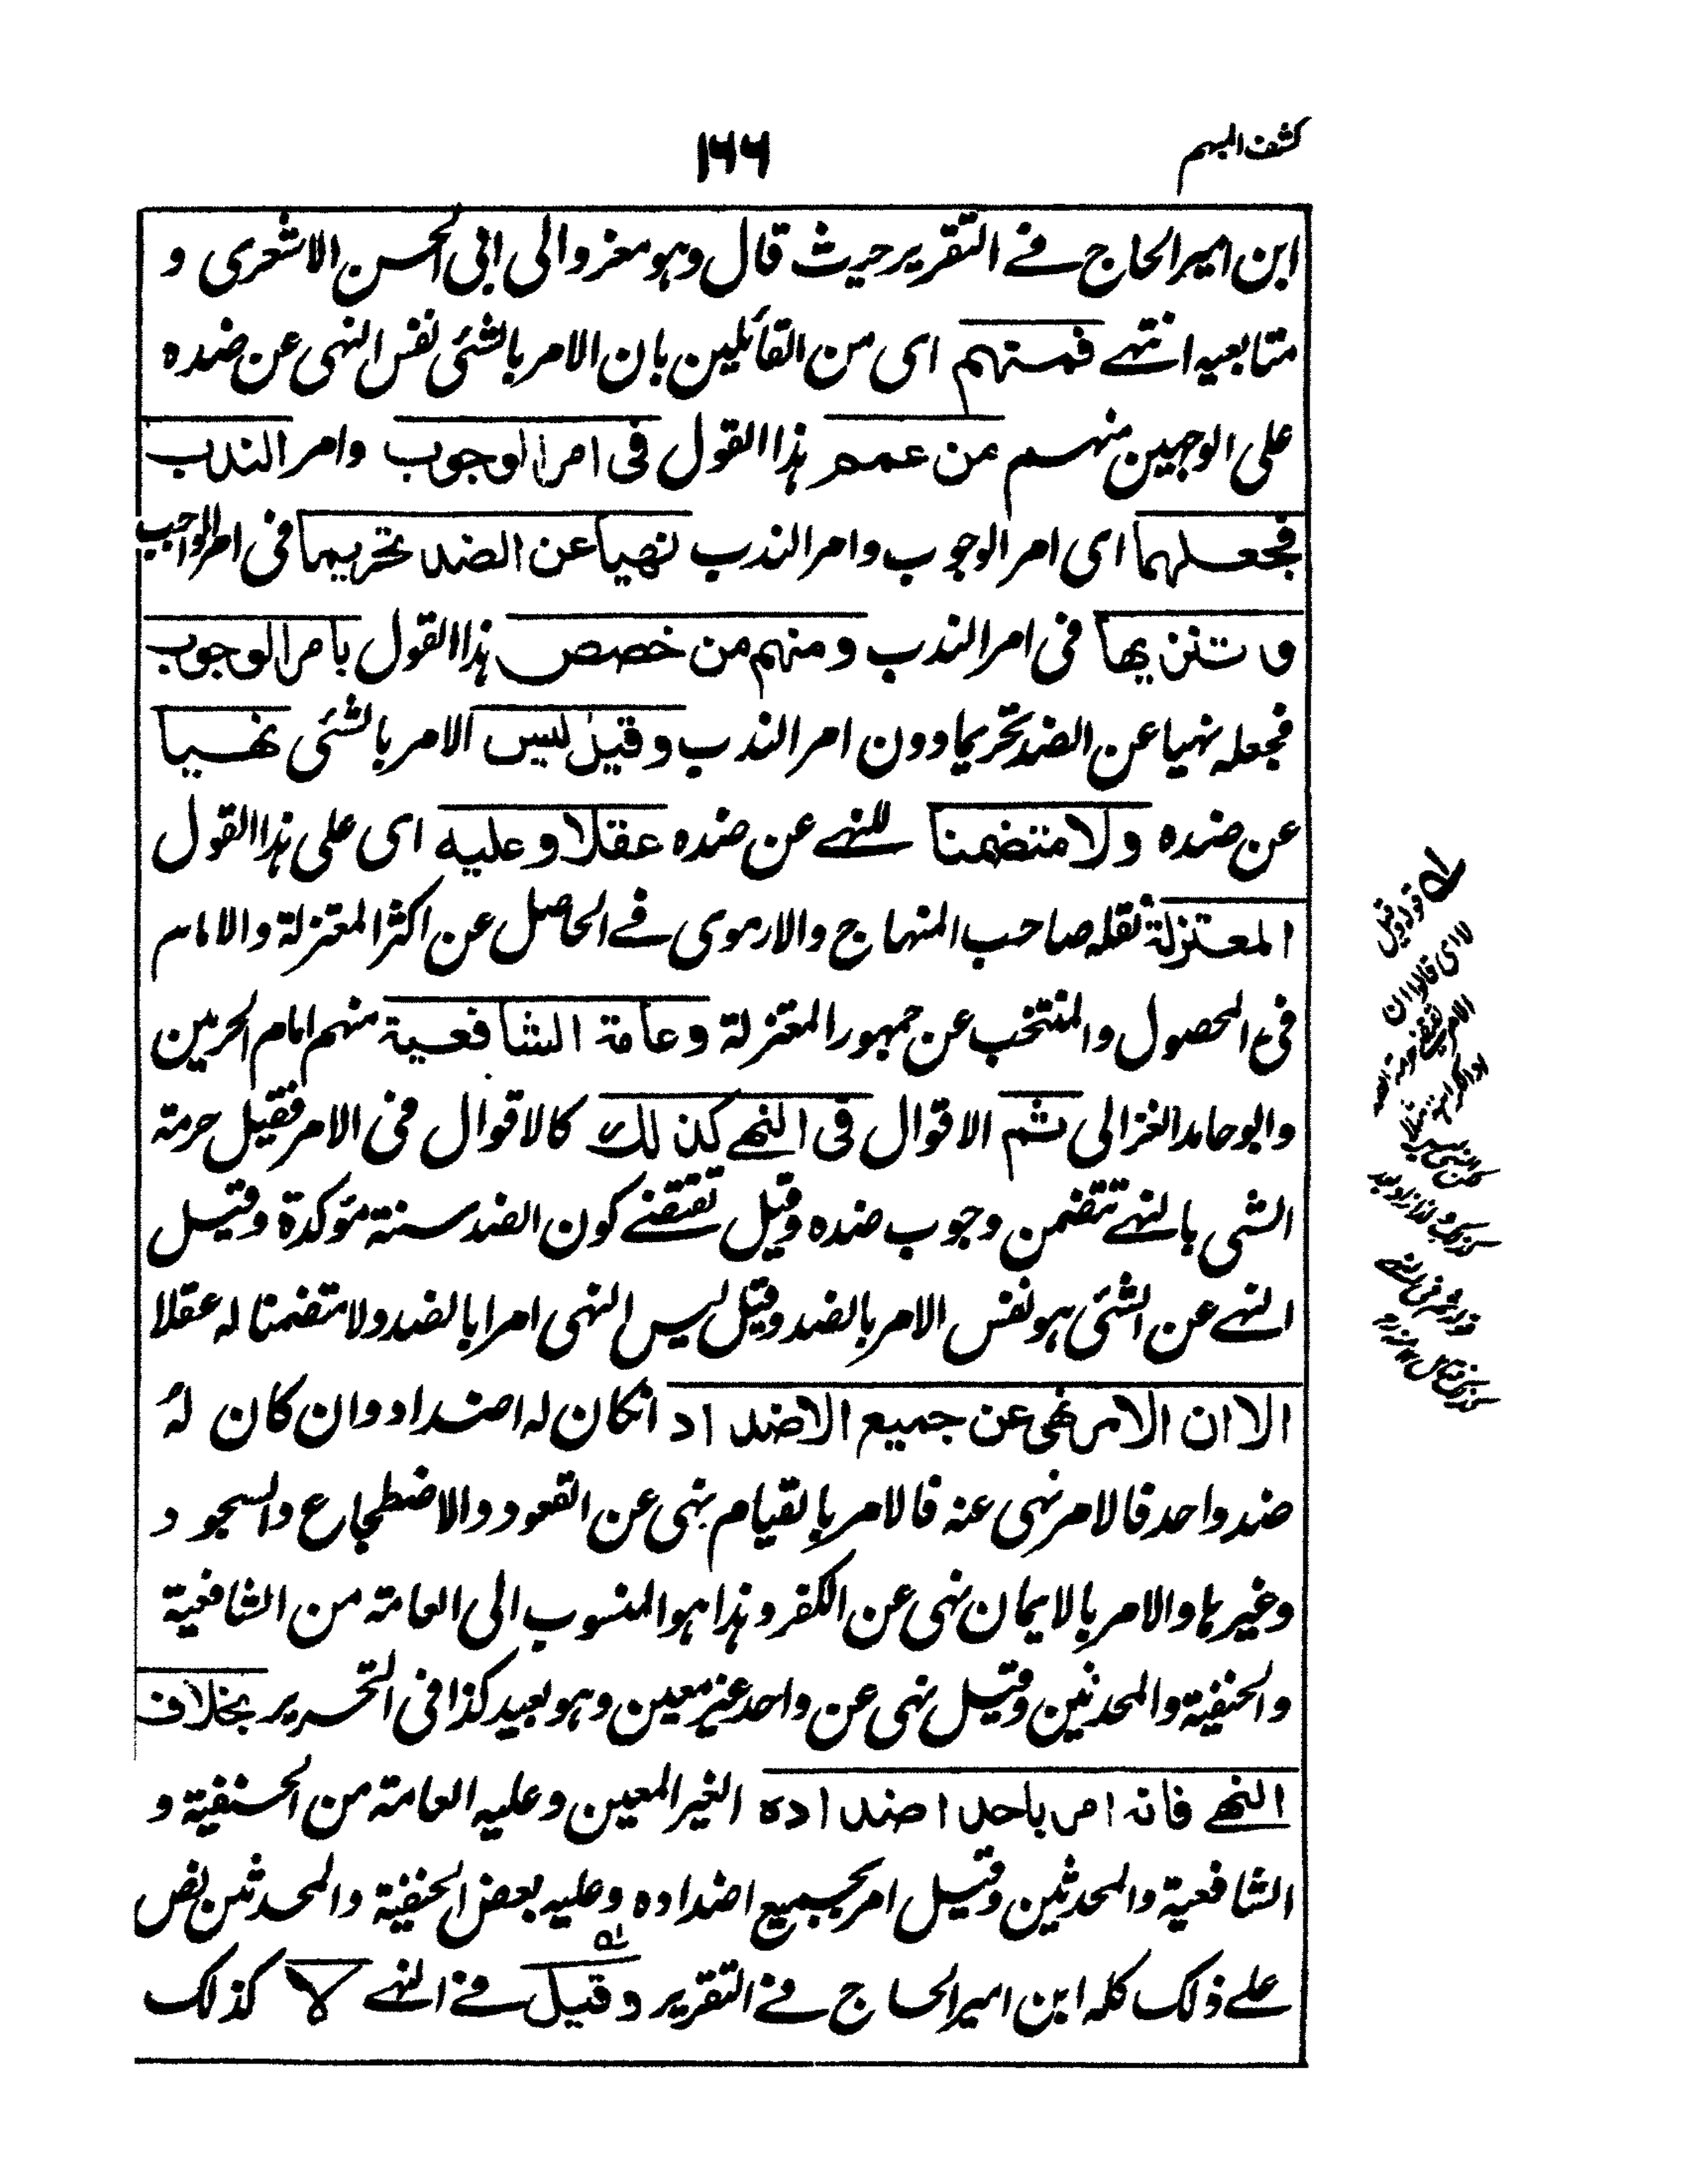 كشف المبهم
۱۶۶
ابن امير الحاج فے التقرير حيث قال وہو مغزو الی ابی الحسن الاشعری و
متابعيه انتہے فمنهم ای من القائلين بان الامر بالشئی نفس النہی عن ضده
علی الوجہين منہم من عمم ہذا القول فی امر الوجوب وامر الندب
فجعلهما ای امر الوجوب وامر الندب نهيا عن الضد تحريما فی امر الواجب
و تنزيها فی امر الندب ومنہم من خصص ہذا القول بامر الوجوب
فجعله نہيا عن الضد تحريما دون امر الندب وقيل ليس الامر بالشئی نهيا
عن ضده ولا متضمنا للنہے عن ضده عقلا وعليه ای علی ہذا القول
المعتزلة نقله صاحب المنہاج والارموی فے الحاصل عن اكثر المعتزلة والامام
فی المحصول والمنتخب عن جمہور المعتزلة وعامة الشافعية منہم امام الحرمين
وابو حامد الغزالی ثم الاقوال فی النهے كذلك كالاقوال فی الامر فقيل حرمة
الشی بالنہے تتضمن وجوب ضده وقيل تقتضے كون الضد سنة مؤكدة وقيل
النہے عن الشئی ہو نفس الامر بالضد وقيل ليس النہی امرا بالضد ولا متضمنا له عقلا
الا ان الامر نهی عن جميع الاضداد انكان له اضداد وان كان لہٗ
ضد واحد فالامر نہی عنه فالامر بالقيام نہی عن القعود والاضطجاع والسجود
وغيرہا والامر بالايمان نہی عن الكفر وہذا ہو المنسوب الی العامة من الشافعية
والحنفية والمحدثين وقيل نہی عن واحد غير معين وہو بعيد كذا فی التحرير بخلاف
النهے فانه امر باحد اضداده الغير المعين وعليه العامة من الحنفية و
الشافعية والمحدثين وقيل امر بجميع اضداده وعليه بعض الحنفية والمحدثين نص
علے ذلك كله ابن امير الحاج فے التقرير وقيل فے النہے لا كذلك
قوله وقيل
لا ای قالوا ان